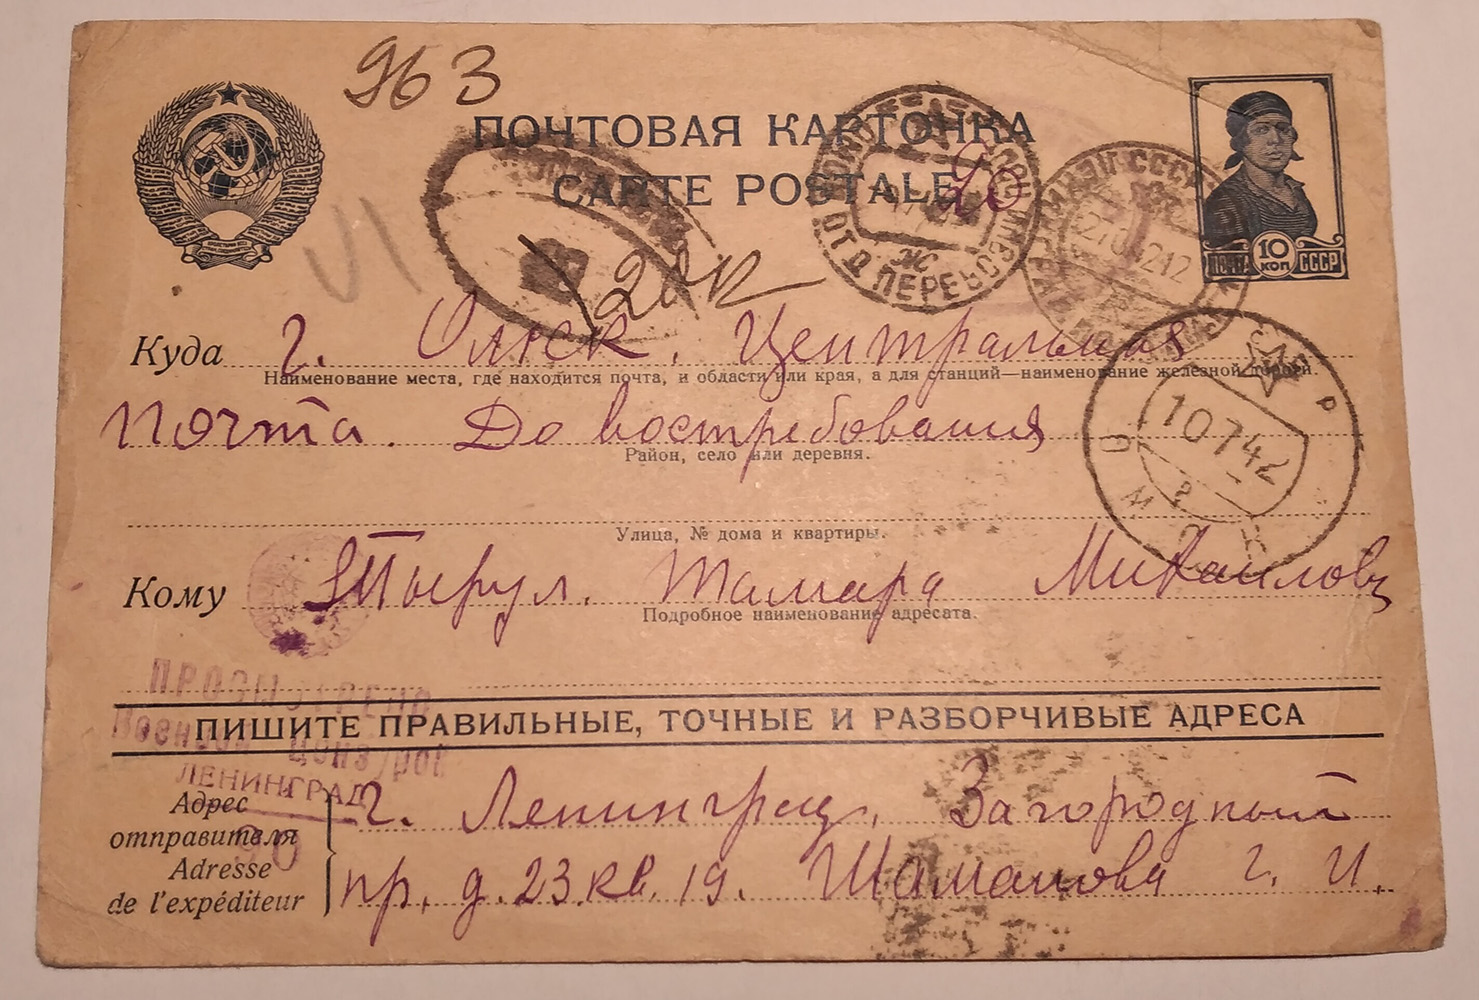 963
ПОЧТОВАЯ КАРТОЧКА
CARTE POSTALE
20
10 КОП
ПОЧТА СССР
ОТД ПЕРЕВОЗ
Ж
СССР
Куда г. Омск. Центральная
Наименование места, где находится почта, и области или края, а для станций—наименование железной дороги.
почта. До востребования
Район, село или деревня.
10 7 42
ОМСК
Улица, № дома и квартиры.
Кому Тамара Михаиловн
Подробное наименование адресата.
ПРОСМОТРЕНО
Военной Цензурой
ЛЕНИНГРАД
ПИШИТЕ ПРАВИЛЬНЫЕ, ТОЧНЫЕ И РАЗБОРЧИВЫЕ АДРЕСА
Адрес отправителя
Adresse de l'expéditeur
г. Ленинград, Загородный
пр. д. 23 кв. 19. Шаманова г. И.